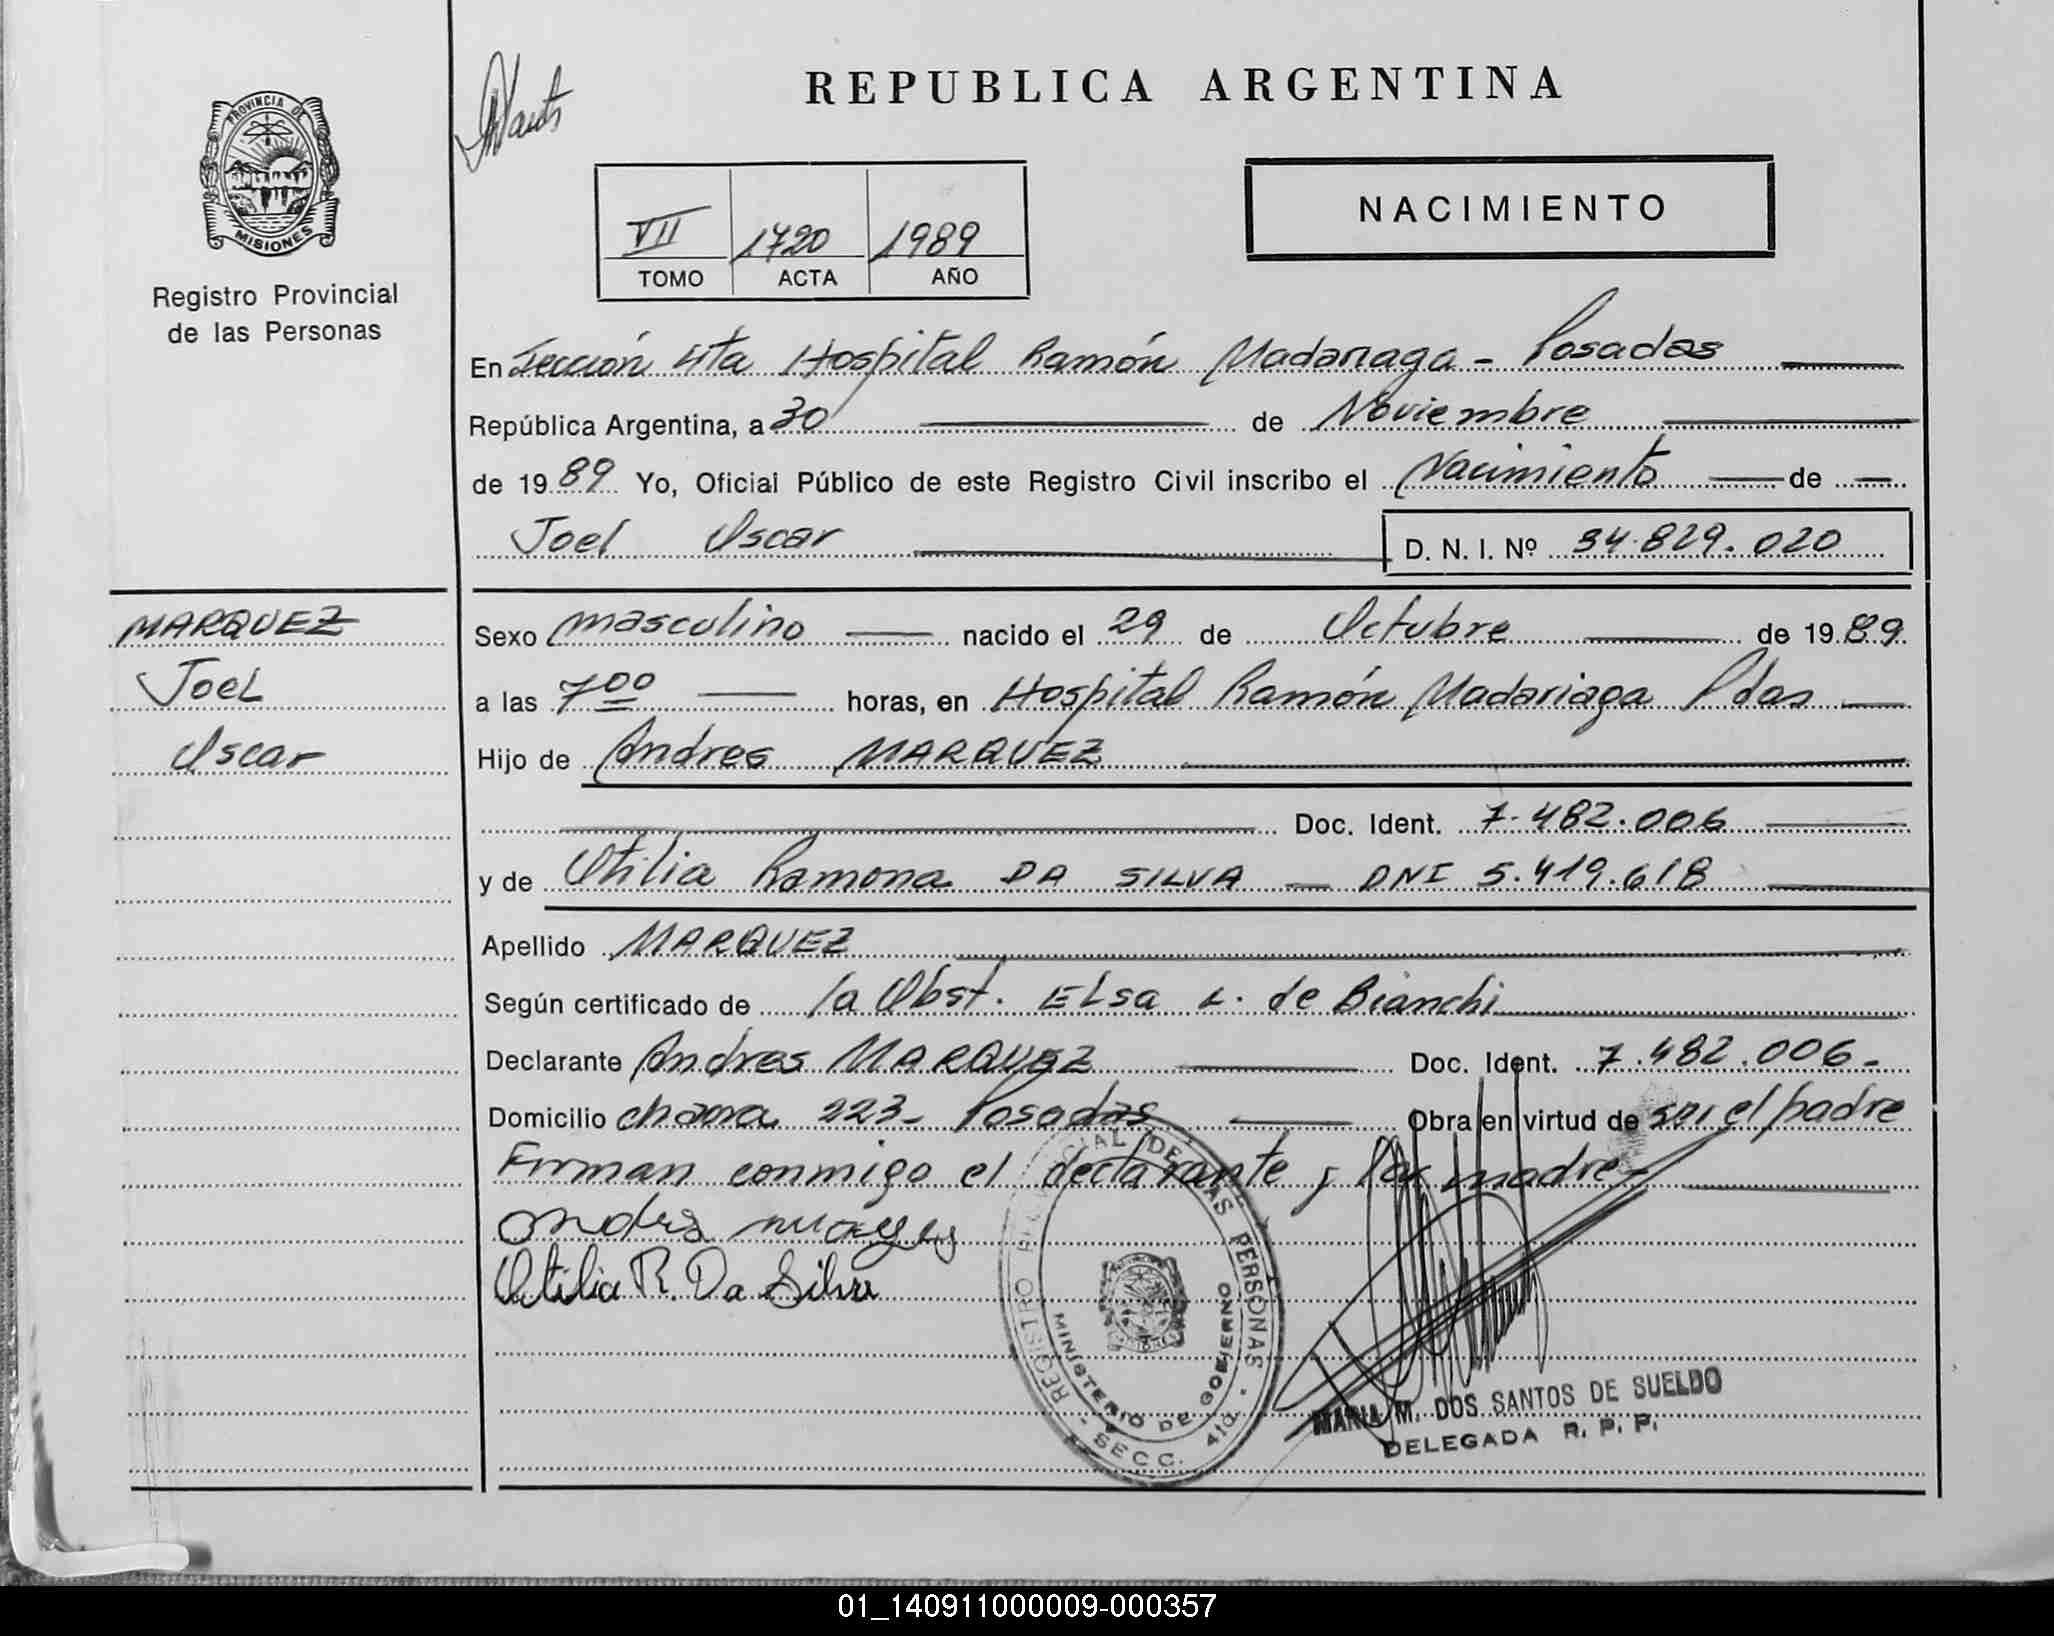 REPUBLICA ARGENTINA
PROVINCIA DE
MISIONES
Registro Provincial
de las Personas
VII 1720 1989
TOMO ACTA AÑO
NACIMIENTO
En Sección 4ta Hospital Ramón Madariaga - Posadas
República Argentina, a 30 de Noviembre
de 1989 Yo, Oficial Público de este Registro Civil inscribo el Nacimiento de
Joel Oscar D. N. I. Nº 34.829.020
MARQUEZ
Joel
Oscar
Sexo masculino nacido el 29 de Octubre de 1989
a las 7 00 horas, en Hospital Ramón Madariaga Pdas
Hijo de Andres MARQUEZ
Doc. Ident. 7.482.006
y de Otilia Ramona DA SILVA — DNI 5.419.618
Apellido MARQUEZ
Según certificado de la Obst. Elsa L. de Bianchi
Declarante Andres MARQUEZ Doc. Ident. 7.482.006-
Domicilio chacra 223- Posadas Obra en virtud de ser el padre
Firman conmigo el declarante y la madre-
Otilia R. Da Silva
REGISTRO PROVINCIAL DE LAS PERSONAS
MINISTERIO DE GOBIERNO
- SECC. 4ta. -
MARIA M. DOS SANTOS DE SUELDO
DELEGADA R. P. P.
01_140911000009-000357